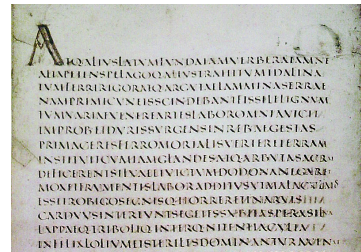 ATQ·ALIVSLATVMFVNDAIAMVERBERATAMNE
ALTAPETENSPELAGOQ·ALIVSTRAHITVMIDALINA
TVMFERRIRIGORATQ·ARGVTAELAMMINASERRAE
NAMPRIMICVNEISSCINDEBANTFISSILELIGNVM
TVMVARIAEVENEREARTESLABOROMNIAVICIT
IMPROBETDVRISVRGENSINREBVSEGESTAS
PRIMACERESFERROMORTALISVERTERETERRAM
INSTITVITCVMIAMGLANDESATQ·ARBVTASACRAE
DEFICERENTSILVAEETVICTVMDODONANEGARET
MOXETFRVMENTISLABORADDITVSVTMALACVLMOS
ESSETROBIGOSEGNISQ·HORRERETINARVIS
CARDVVSINTEREVNTSEGETESSVBITASPERASILVA
LAPPAEQ·TRIBOLIQ·INTERQ·NITENTIACVLTA
INFELIXLOLIVMETSTERILESDOMINANTVRAVENAE